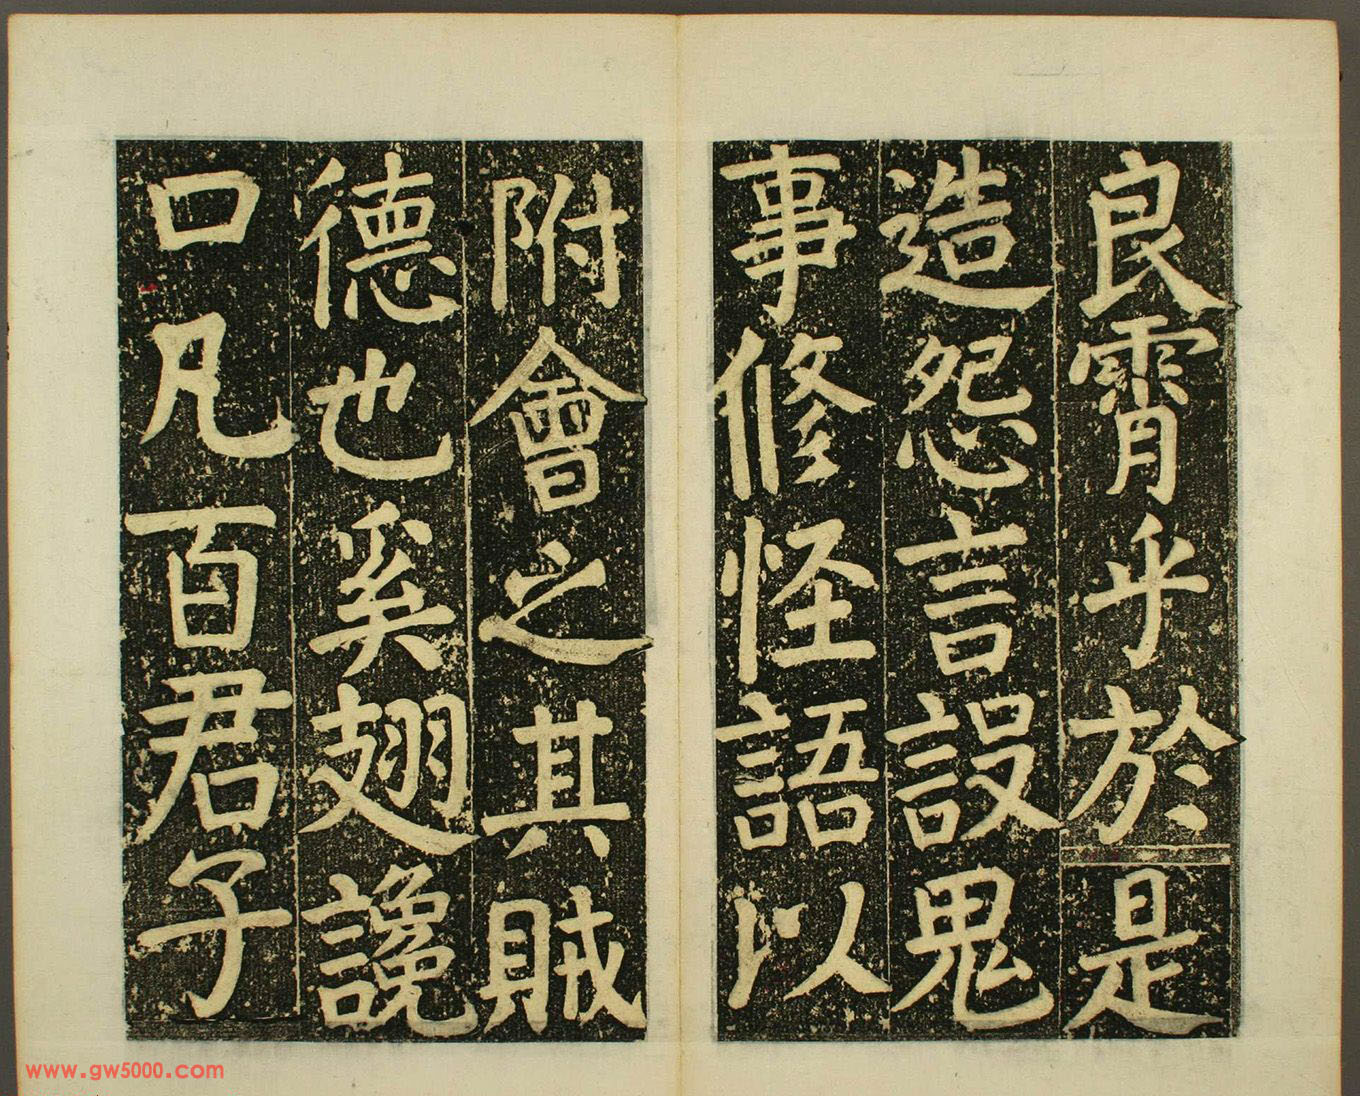 良霄乎於是
造怨言設鬼
事修怪語以
附會之其賊
德也奚翅讒
口凡百君子
www.gw5000.com